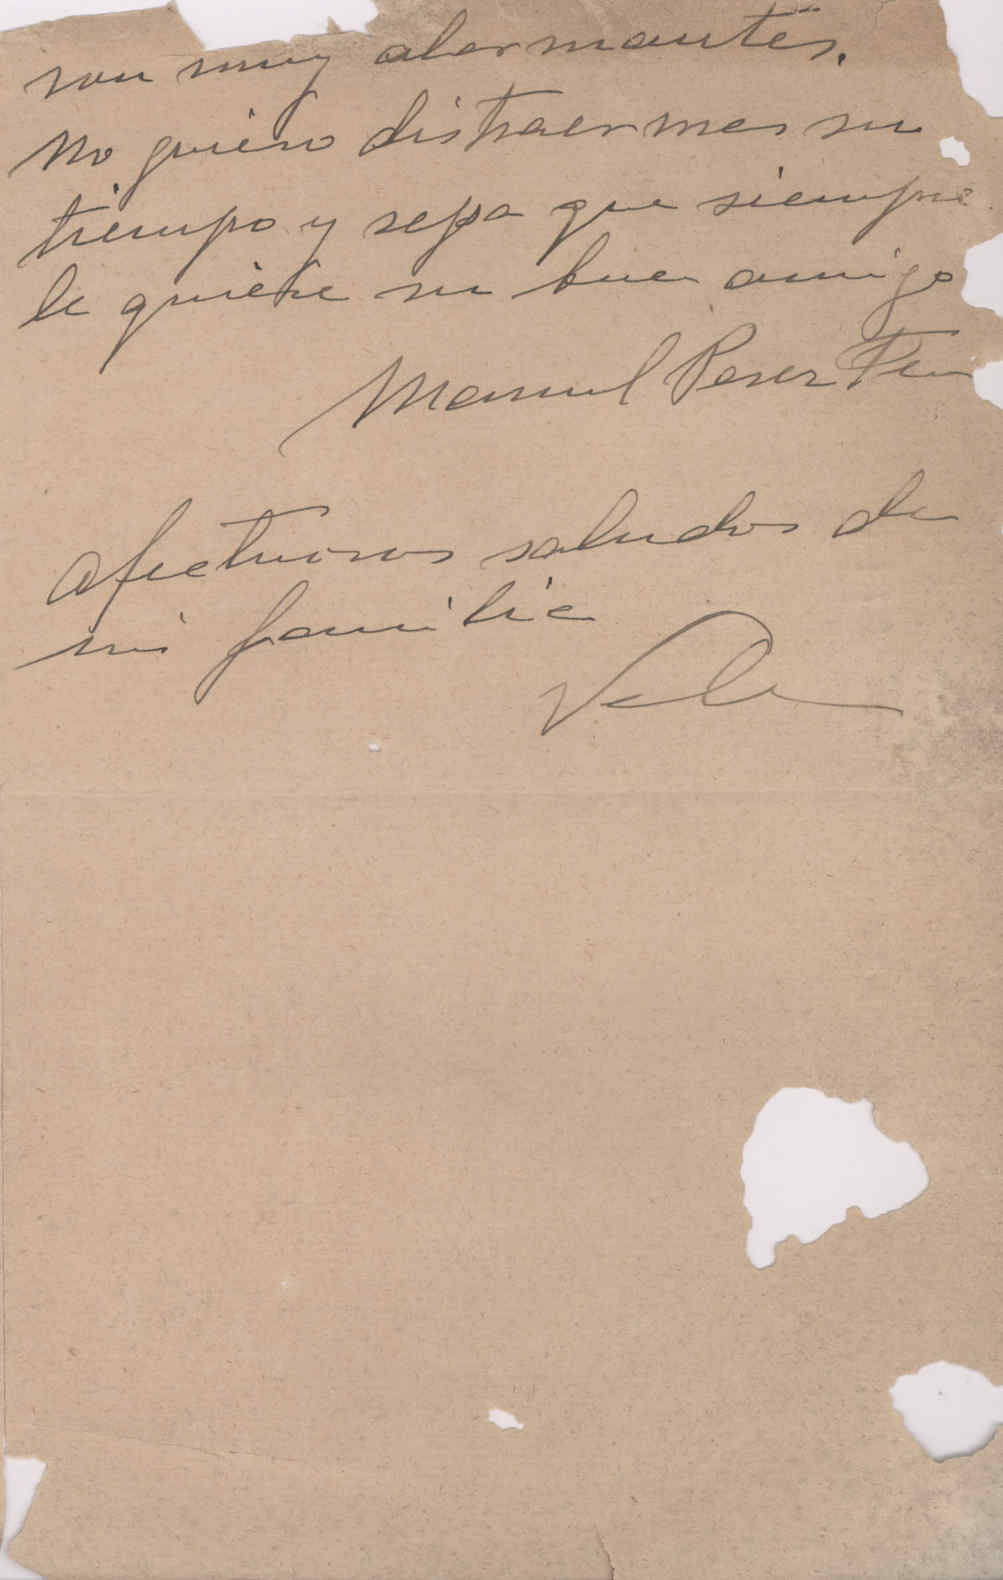 son muy alarmantes.
No quiero distraer mas su
tiempo y sepa que siempre
le quiere su buen amigo
Manuel Perez
Afectuosos saludos de
mi familia
Vale